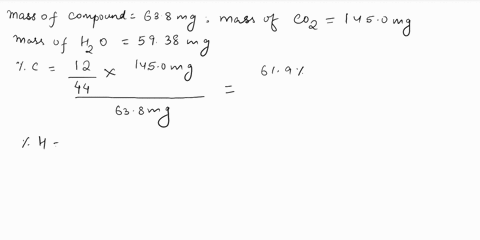 mass of compound = 63.8 mg, mass of CO2 = 145.0 mg
mass of H2O = 59.38 mg
% C = 12/44 × 145.0 mg / 63.8 mg = 61.9 %
% H -